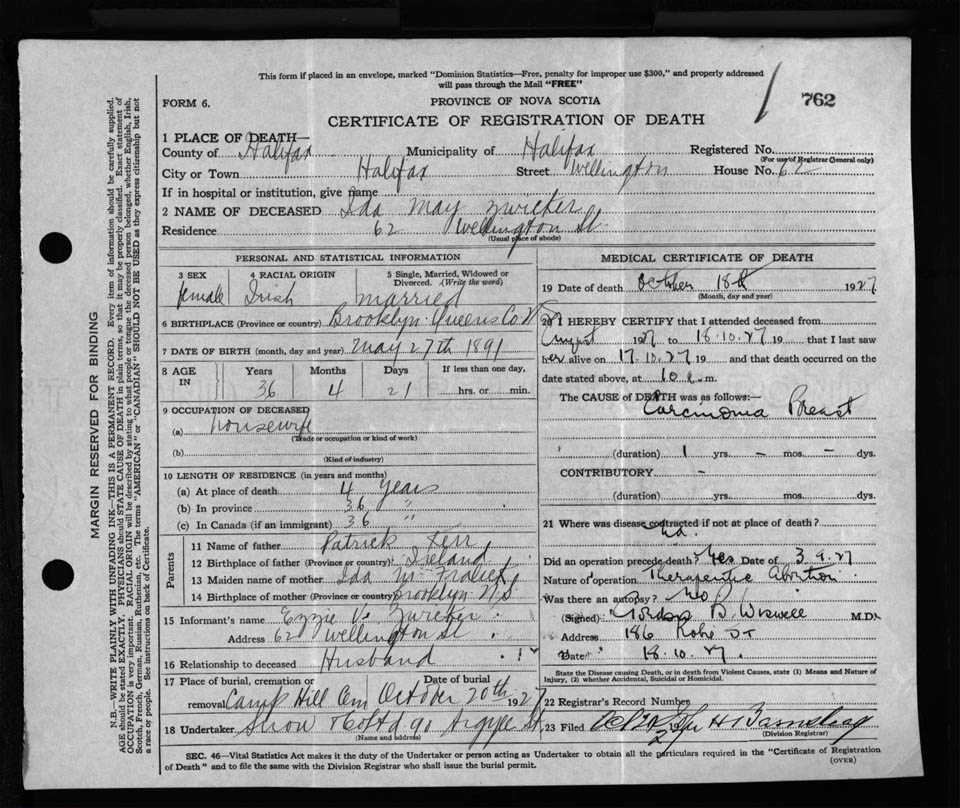 This form if placed in an envelope, marked "Dominion Statistics—Free, penalty for improper use $300," and properly addressed
will pass through the Mail "FREE"
FORM 6.
PROVINCE OF NOVA SCOTIA
762
CERTIFICATE OF REGISTRATION OF DEATH
1 PLACE OF DEATH—
County of Halifax Municipality of Halifax Registered No.
(For use of Registrar General only)
City or Town Halifax Street Wellington House No. 62
If in hospital or institution, give name
2 NAME OF DECEASED Ida May Zwicker
Residence 62 Wellington St.
(Usual place of abode)
PERSONAL AND STATISTICAL INFORMATION
3 SEX 4 RACIAL ORIGIN 5 Single, Married, Widowed or
Divorced. (Write the word)
female Irish married
6 BIRTHPLACE (Province or country) Brooklyn Queens Co. N.S.
7 DATE OF BIRTH (month, day and year) May 27th 1891
8 AGE IN Years Months Days If less than one day,
36 4 21 hrs. or min.
9 OCCUPATION OF DECEASED
(a) housewife
(Trade or occupation or kind of work)
(b)
(Kind of industry)
10 LENGTH OF RESIDENCE (in years and months)
(a) At place of death 4 years
(b) In province 36 "
(c) In Canada (if an immigrant) 36 "
Parents
11 Name of father Patrick
12 Birthplace of father (Province or country) Ireland
13 Maiden name of mother Ida M.
14 Birthplace of mother (Province or country) Brooklyn N.S.
15 Informant's name V. Zwicker
Address 62 Wellington St
16 Relationship to deceased Husband
17 Place of burial, cremation or Date of burial
removal Camp Hill Cem October 20th 1927
18 Undertaker Snow & Co Ltd 90 Argyle St.
(Name and address)
MEDICAL CERTIFICATE OF DEATH
19 Date of death October 18th 1927
(Month, day and year)
20 I HEREBY CERTIFY that I attended deceased from
August 1927 to 18.10.27 19 that I last saw
her alive on 17.10.27 19 and that death occurred on
date stated above, at 10 m.
The CAUSE of DEATH was as follows:—
Carcinoma Breast
(duration) 1 yrs. – mos. – dys.
CONTRIBUTORY. –
(duration) yrs. mos. dys.
21 Where was disease contracted if not at place of death?
Did an operation precede death? Yes Date of 3.9.27
Nature of operation Therapeutic Abortion
Was there an autopsy? No
(Signed) B. Wiswell M.D.
Address 186 Robie St
Date 18.10.27.
State the Disease causing Death, or in death from Violent Causes, state (1) Means and Nature of
Injury, (2) whether Accidental, Suicidal or Homicidal.
22 Registrar's Record Number
23 Filed
(Division Registrar)
SEC. 46—Vital Statistics Act makes it the duty of the Undertaker or person acting as Undertaker to obtain all the particulars required in the "Certificate of Registration
of Death" and to file the same with the Division Registrar who shall issue the burial permit.
(OVER)
MARGIN RESERVED FOR BINDING
N.B.—WRITE PLAINLY WITH UNFADING INK—THIS IS A PERMANENT RECORD. Every item of information should be carefully supplied.
AGE should be stated EXACTLY. PHYSICIANS should STATE CAUSE OF DEATH in plain terms, so that it may be properly classified. Exact statement of
OCCUPATION is very important. RACIAL ORIGIN will be described by stating to what people or tongue the deceased person belonged, whether English, Irish,
Scotch, French, German, Russian, Ruthenian, etc. The terms "AMERICAN" or "CANADIAN" SHOULD NOT BE USED as they express citizenship but not
a race or people. See instructions on back of Certificate.